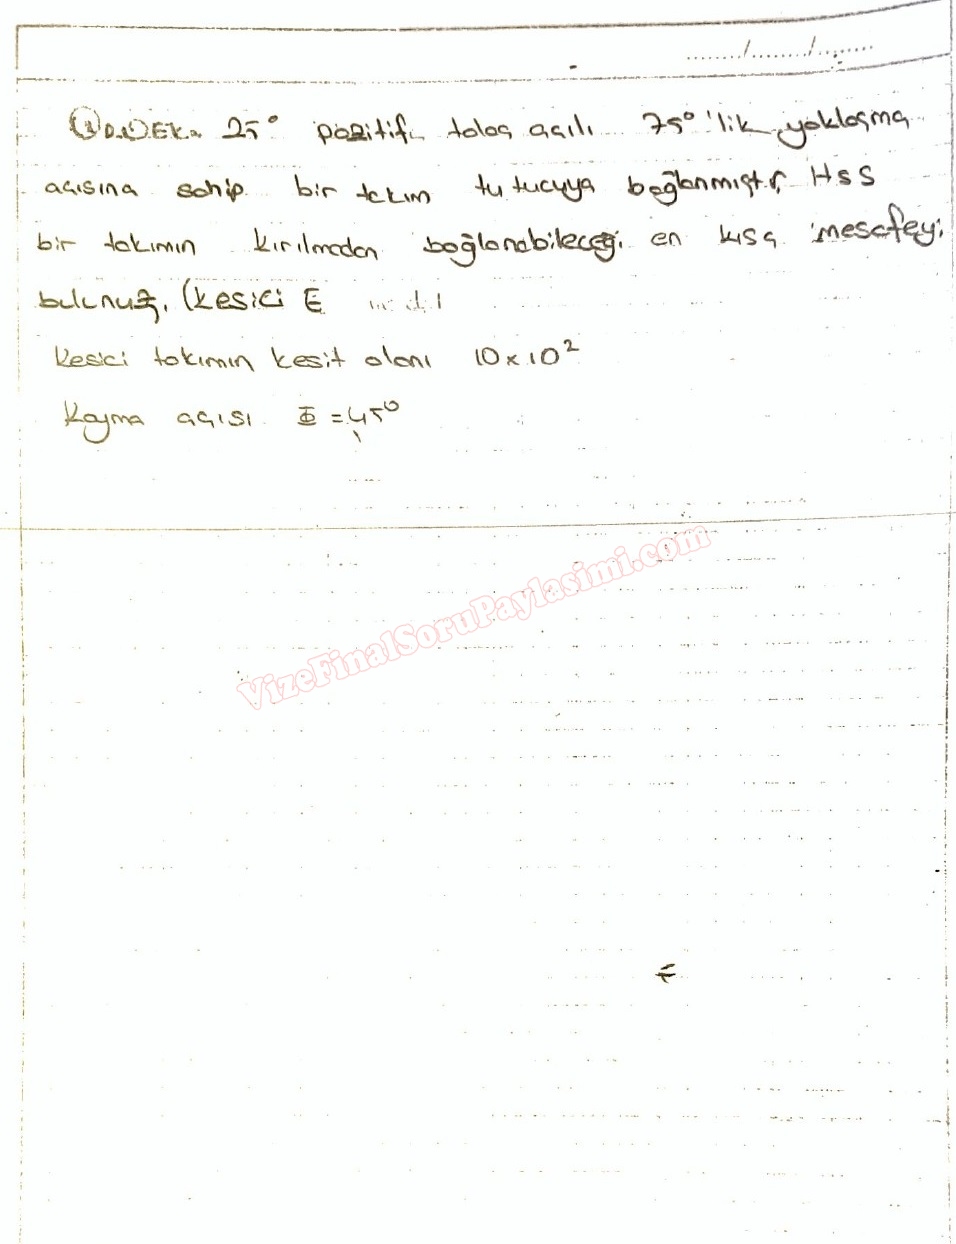 ...../......./........
① ÖDEV. 25° pozitif talaş açılı 75°'lik yaklaşma
açısına sahip bir takım tutucuya bağlanmıştır HSS
bir takımın kırılmadan bağlanabileceği en kısa mesafeyi
bulunuz. (kesici E
Kesici takımın kesit alanı 10 x 10²
Kayma açısı Φ = 45°
VizeFinalSoruPaylasimi.com